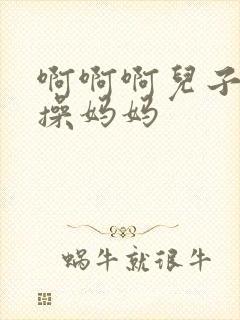 啊啊啊兒子
操妈妈
蜗牛就很牛